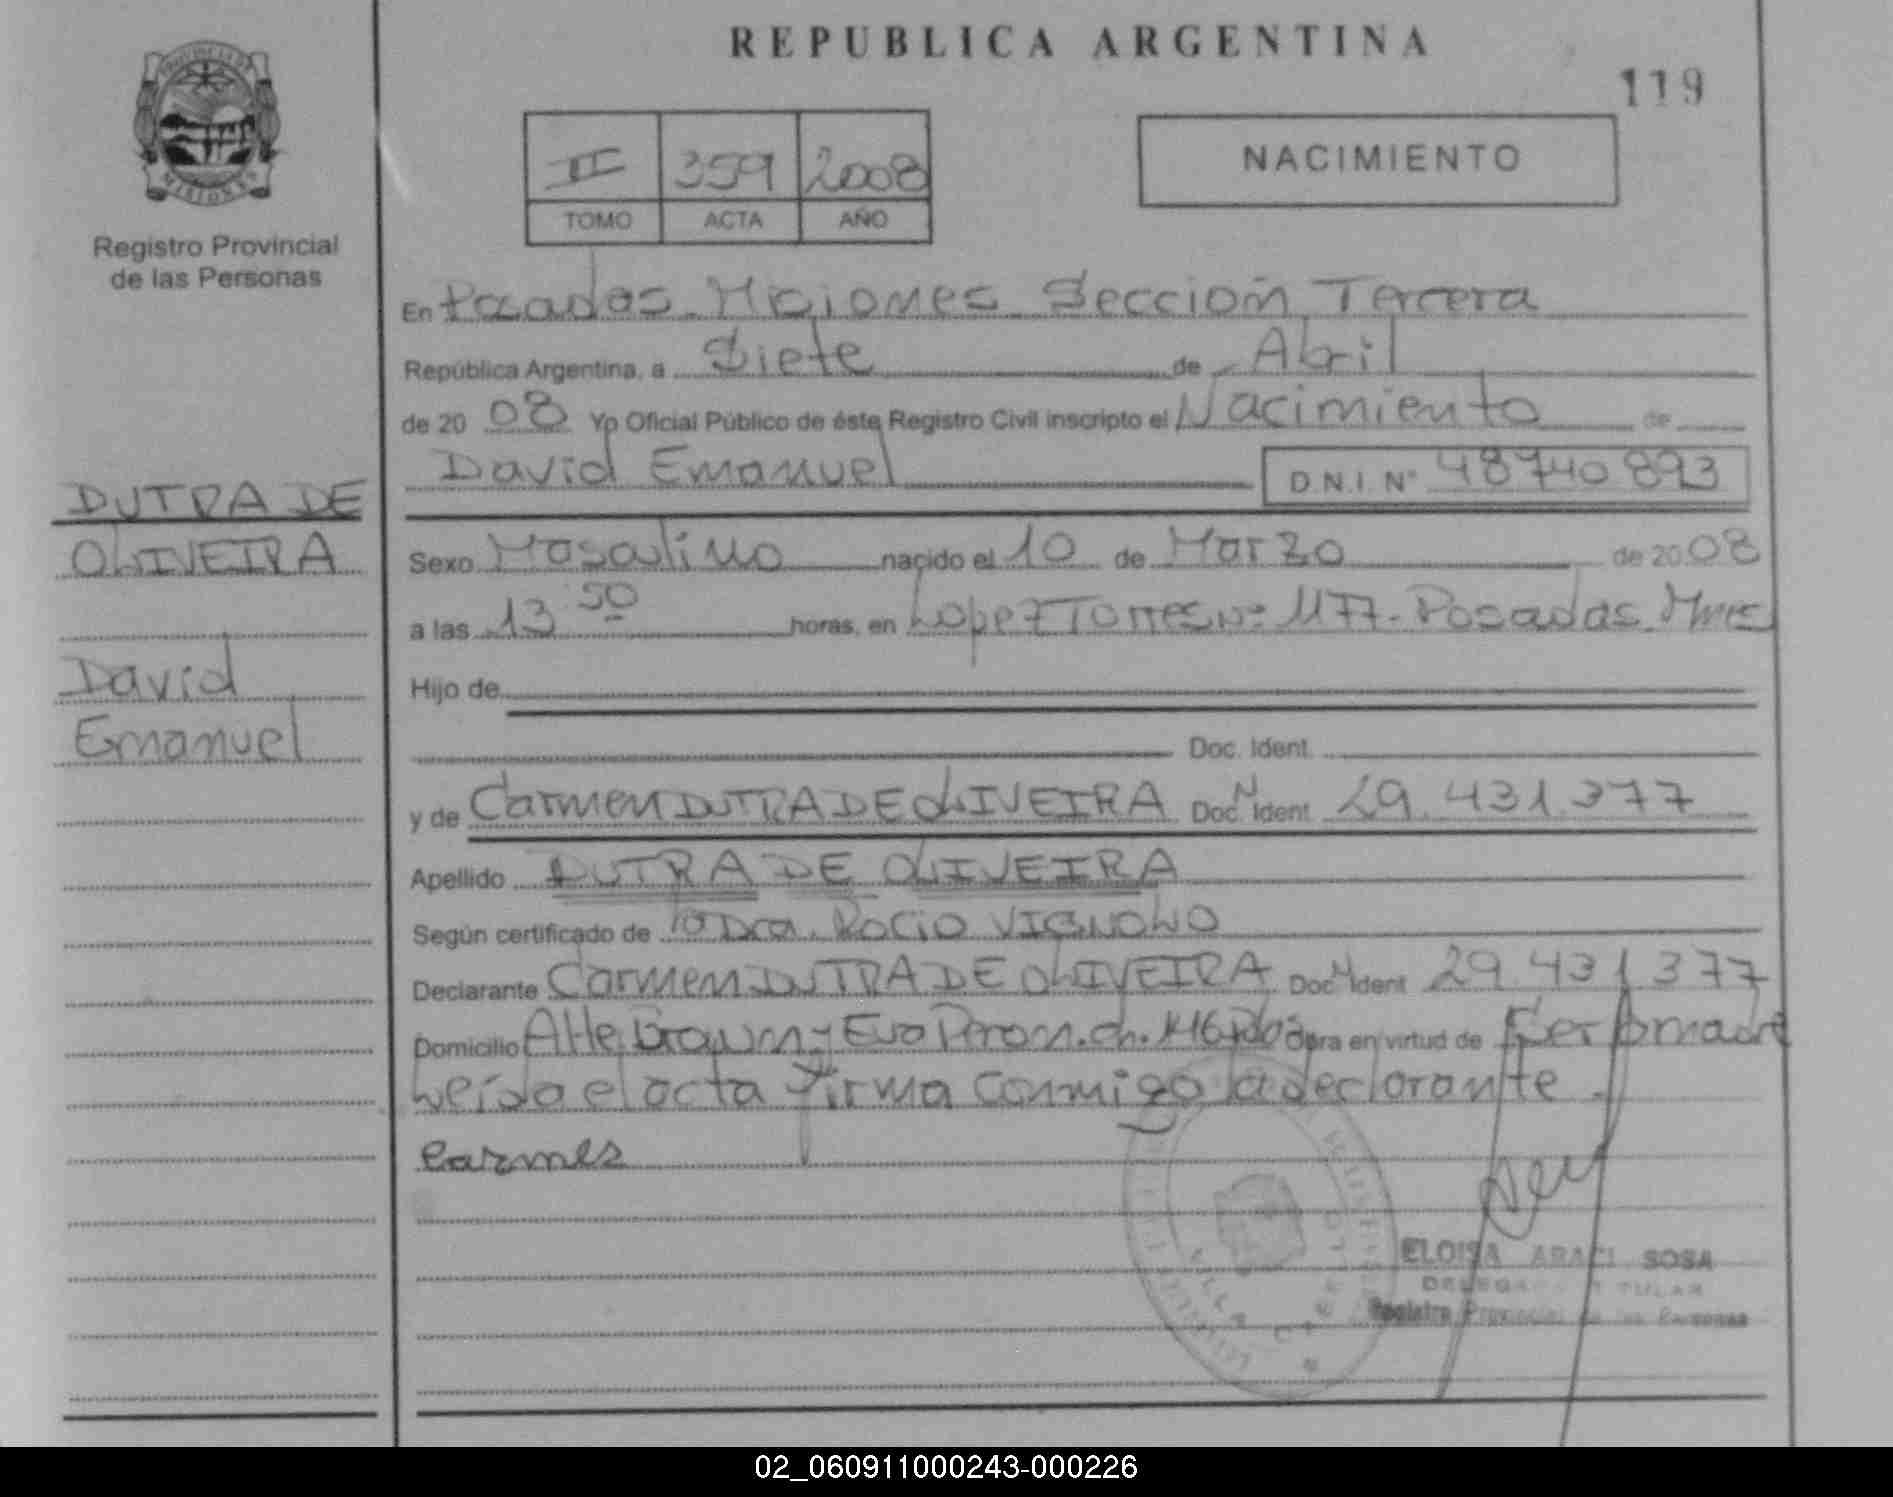 REPUBLICA ARGENTINA
119
PROVINCIA DE
MISIONES
Registro Provincial
de las Personas
II 359 2008
TOMO ACTA AÑO
NACIMIENTO
En Posadas Misiones Sección Tercera
República Argentina, a Siete de Abril
de 2008 Yo Oficial Público de éste Registro Civil inscripto el Nacimiento de
David Emanuel D.N.I. Nº 48740893
DUTRA DE
OLIVEIRA
David
Emanuel
Sexo Masculino nacido el 10 de Marzo de 2008
a las 13 50 horas, en Lopez Torres Nº 1177. Posadas. Mnes
Hijo de
Doc. Ident.
y de Carmen DUTRA DE OLIVEIRA Doc. N Ident. 29.431.377
Apellido DUTRA DE OLIVEIRA
Según certificado de la Dra. Rocio VIGNOLO
Declarante Carmen DUTRA DE OLIVEIRA Doc. N Ident 29.431.377
Domicilio Alte Brown y Eva Peron. ch. 146 Pdas Obra en virtud de Ser su madre
Leída el acta firma conmigo la declarante.
Carmes
ELOISA ARACI SOSA
DELEGADA TITULAR
Registro Provincial de las Personas
02_060911000243-000226